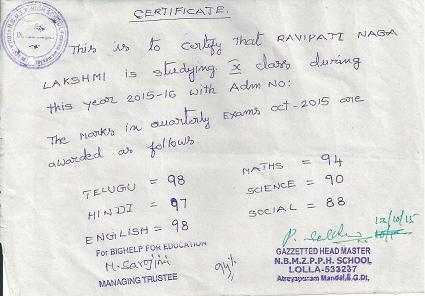 CERTIFICATE.
This is to certify That RAVIPATI NAGA
LAKSHMI is studying X class during
this year 2015-16 with Adm No:
The Marks in quarterly Exams oct-2015 are
awarded as follows.
TELUGU = 98
HINDI = 97
ENGLISH = 98
MATHS = 94
SCIENCE = 90
SOCIAL = 88
For BIGHELP FOR EDUCATION
M. Sarojini
MANAGING TRUSTEE
94%
12/10/15
GAZZETTED HEAD MASTER
N.B.M.Z.P.P.H. SCHOOL
LOLLA-533237
Atreyapuram Mandal, E.G.Dt.